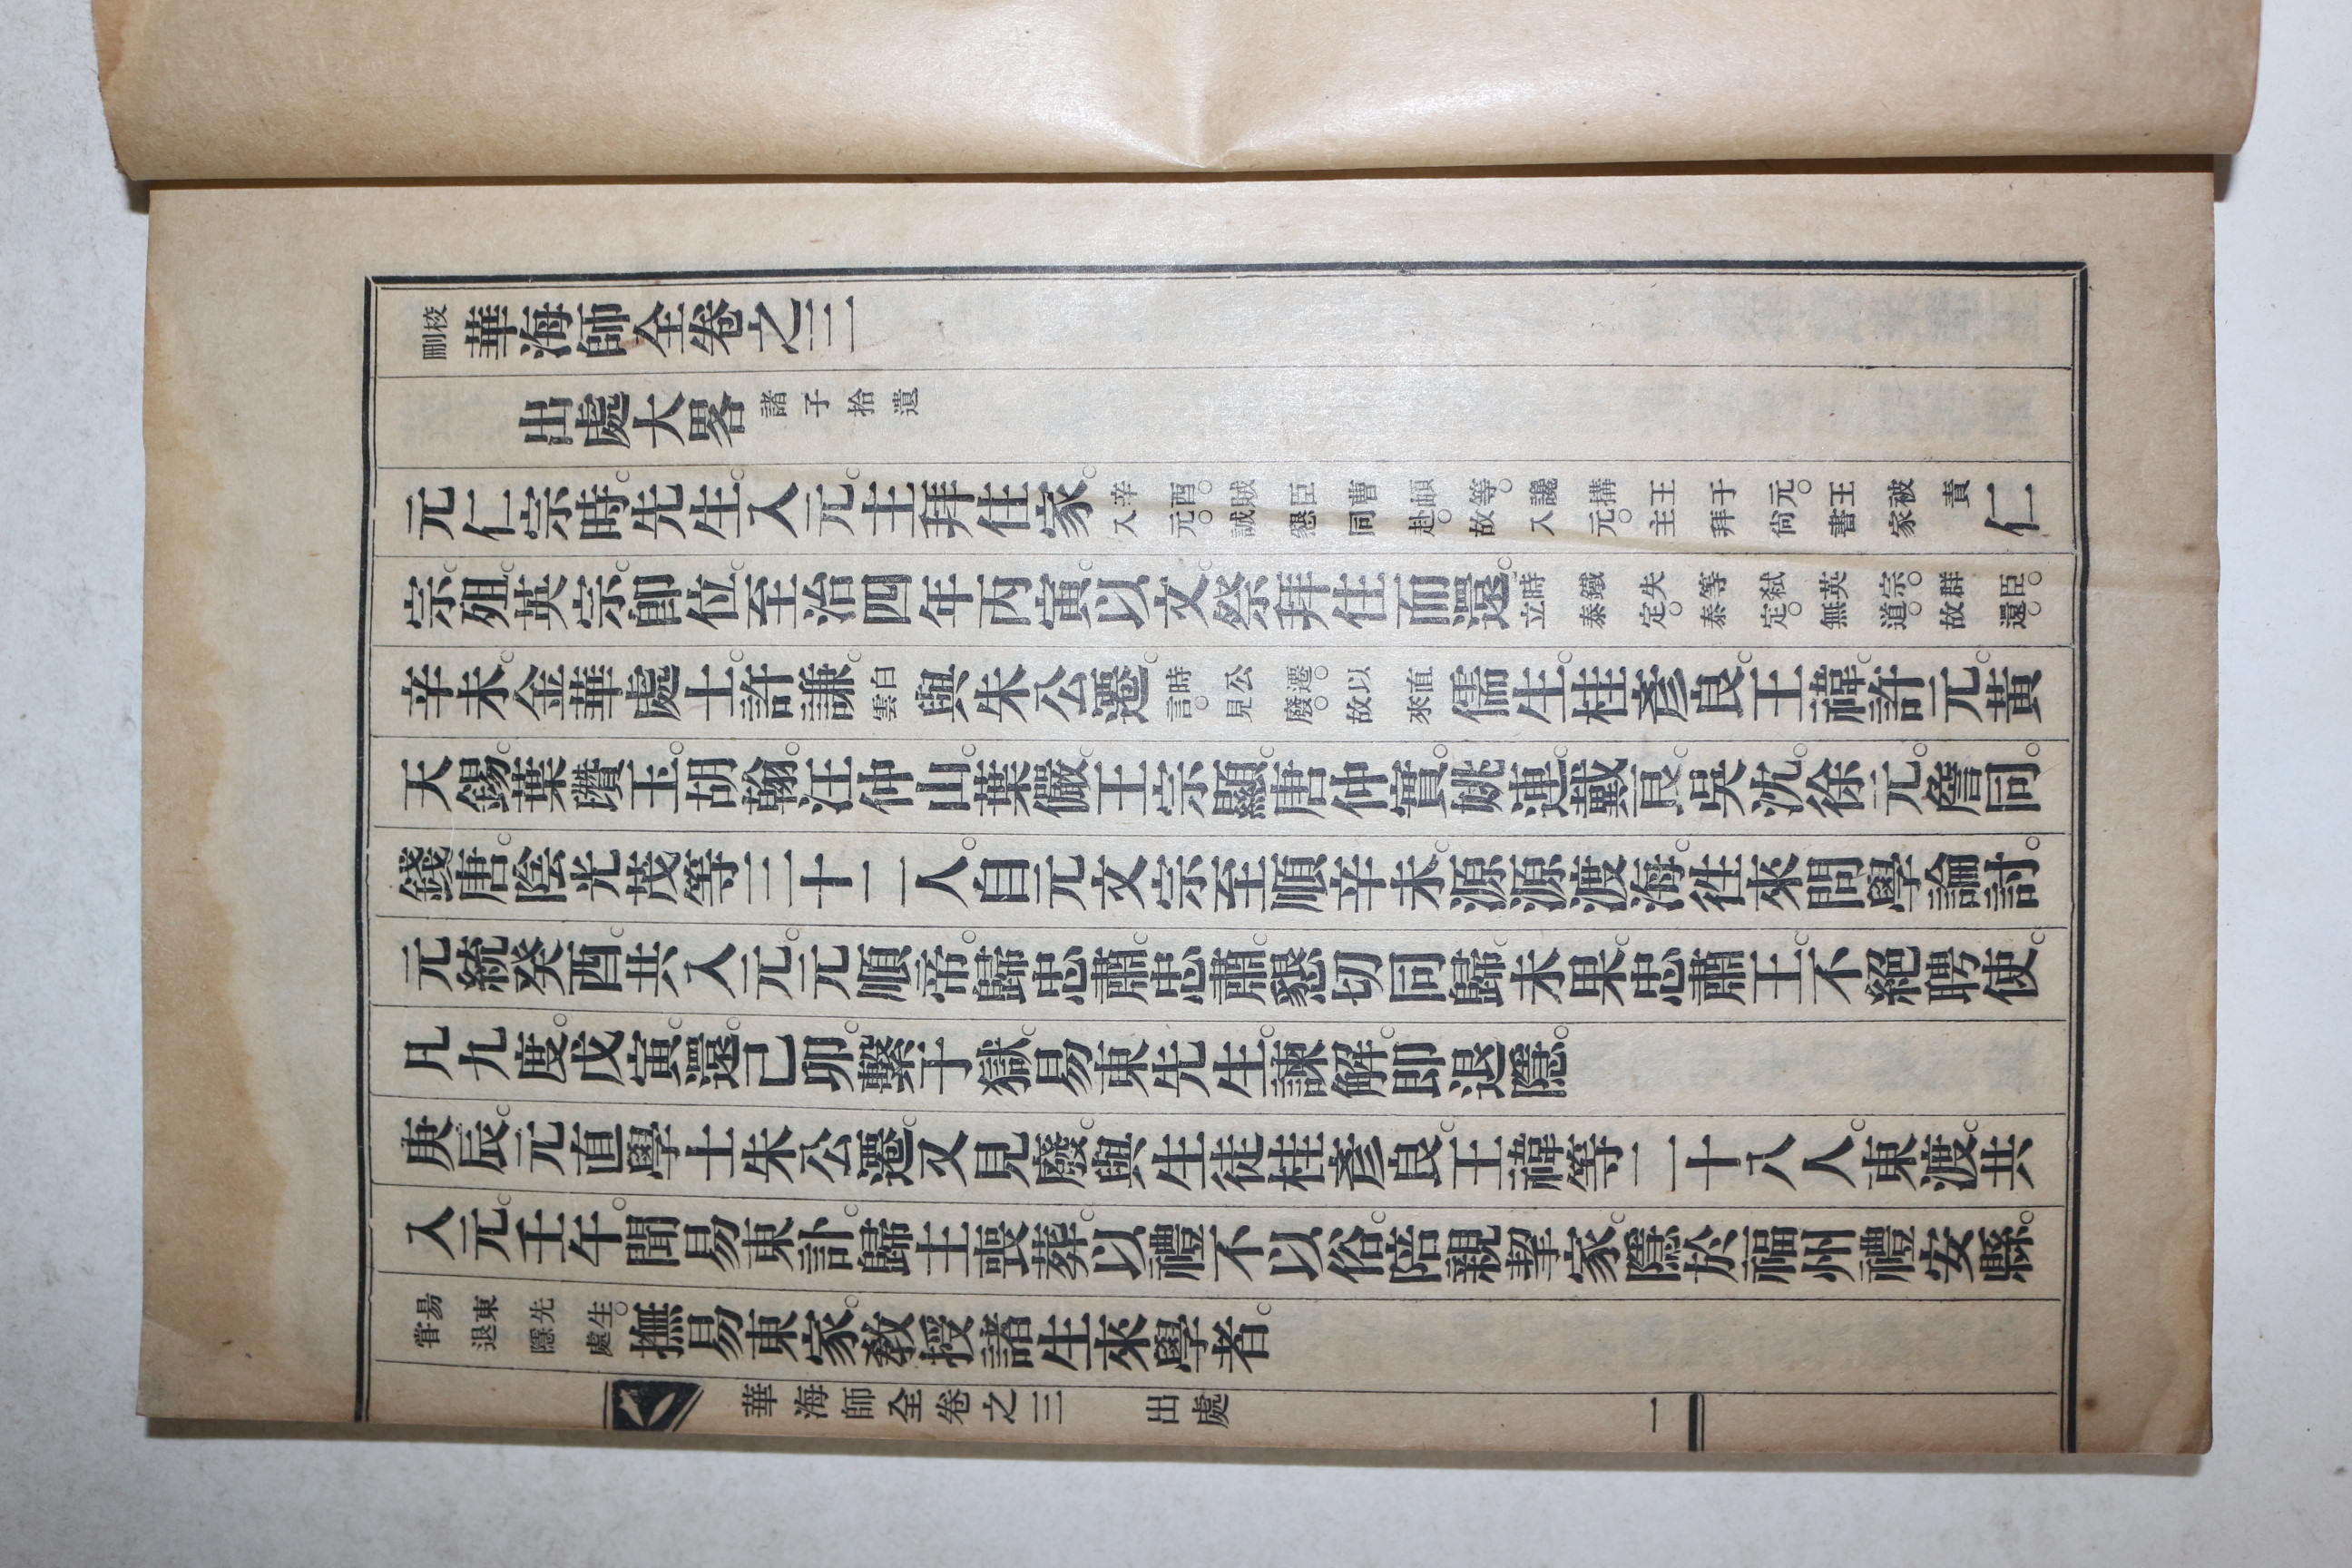 校刪華海師全卷之三
出處大畧諸子拾遺
元仁宗時。先生。入元。主拜住家。辛酉。賊臣曹頔等。讒搆王于元。王被責入元。誠懇同赴。故入元。主拜尙書家仁
宗。殂。英宗。卽位。至治四年丙寅。以文。祭拜住而還。時鐵失等弒英宗。群臣。立泰定。泰定。無道。故還。
辛未。金華處士。許謙。白雲與朱公遷。時公遷。以直言。見廢。故來儒生。桂彥良。王褘。許元。黃
天錫。葉瓚玉。胡翰。汪仲山。葉儼。王宗顯。唐仲實。姚連。戴良。吳沈。徐元。詹同。
錢唐。陰光茂等三十二人。自元文宗至順辛未。源源渡海。往來問學論討。
元統癸酉。共入元。元順帝。歸忠肅。忠肅。懇切同歸。未果。忠肅王。不絕聘使。
凡九度。戊寅。還。己卯。繫于獄。易東先生。諫解。卽退隱。
庚辰。元直學士朱公遷。又見廢。與生徒桂彥良。王褘等二十八人。東渡。共
入元。壬午。聞易東訃。歸主喪葬。以禮不以俗。陪親挈家。隱於福州禮安縣。
易東先生。甞退隱處撫易東家。敎授諸生來學者。
華海師全卷之三 出處 一